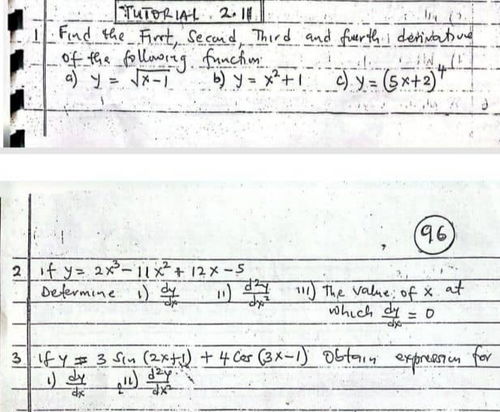 TUTORIAL 2.11
1 Find the First, Second, Third and fourth derivative
of the following function
a) y = √x-1 b) y = x²+1 c) y = (5x+2)⁴
96
2 if y = 2x³ - 11x² + 12x - 5
Determine i) dy/dx ii) d²y/dx² iii) The value of x at
which dy/dx = 0
3 if y = 3 Sin (2x+1) + 4 Cos (3x-1) Obtain expression for
i) dy/dx ii) d²y/dx²